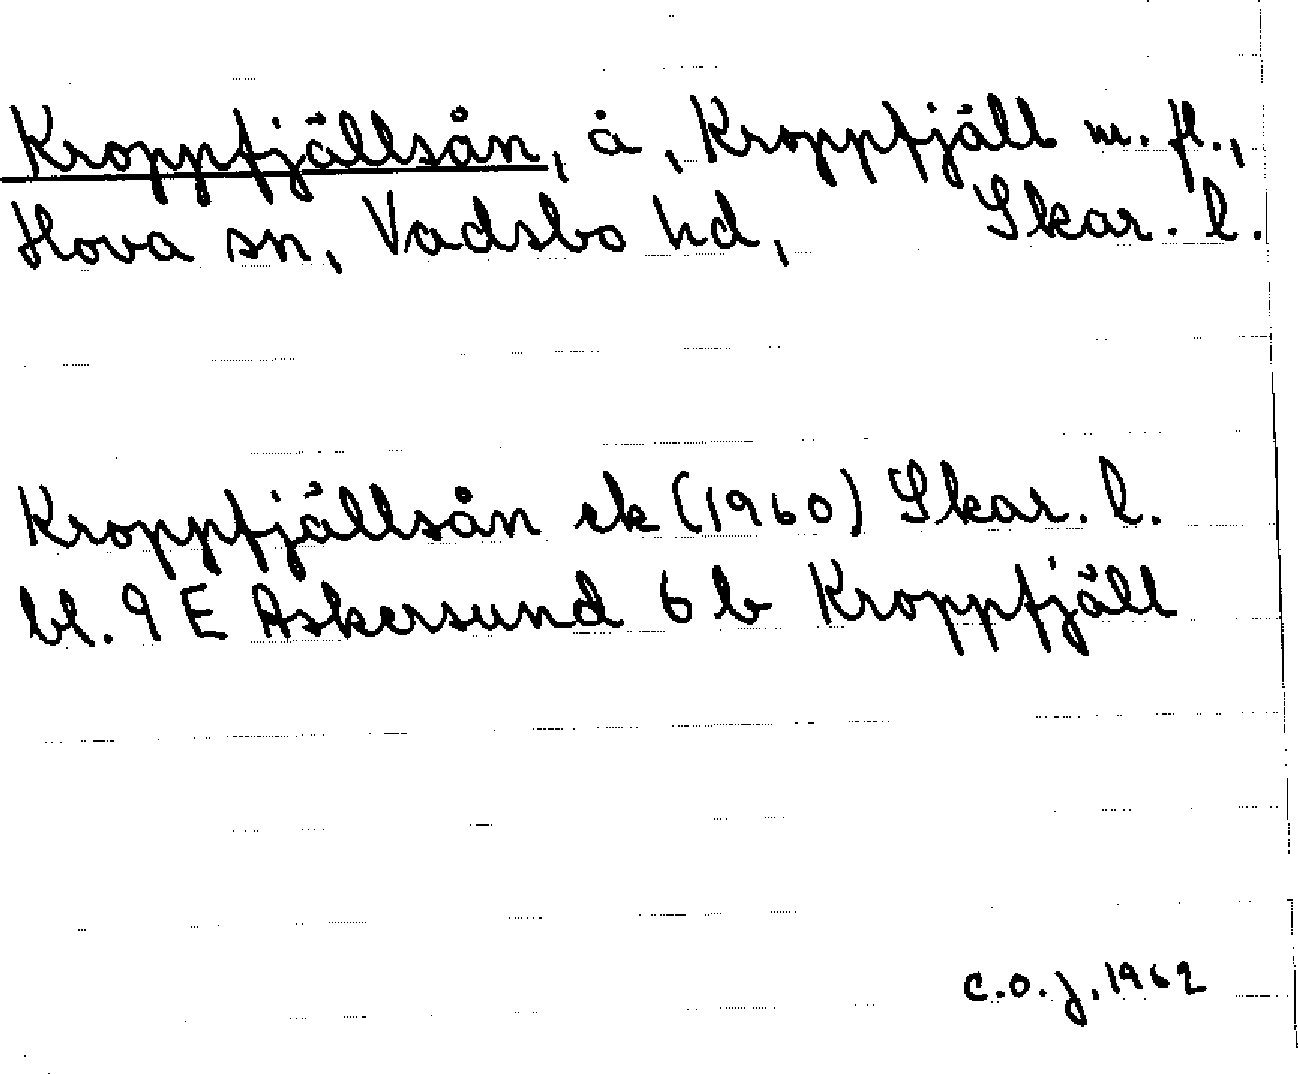 Kroppfjällsån, å, Kroppfjäll m. fl.,
Hova sn, Vadsbo hd, Skar. l.
Kroppfjällsån ek (1960) Skar. l.
bl. 9 E Askersund 6 b Kroppfjäll
C.O.J. 1962